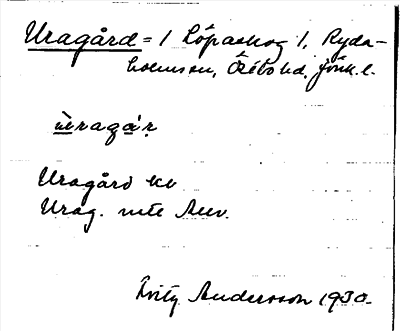 Uragård = 1 Löpaskog 1, Ryda-
holmssn, Östbo hd, Jönk. l.
ùragá'r
Uragård kv
Urag. nste Auv.
Fritz Andersson 1930.